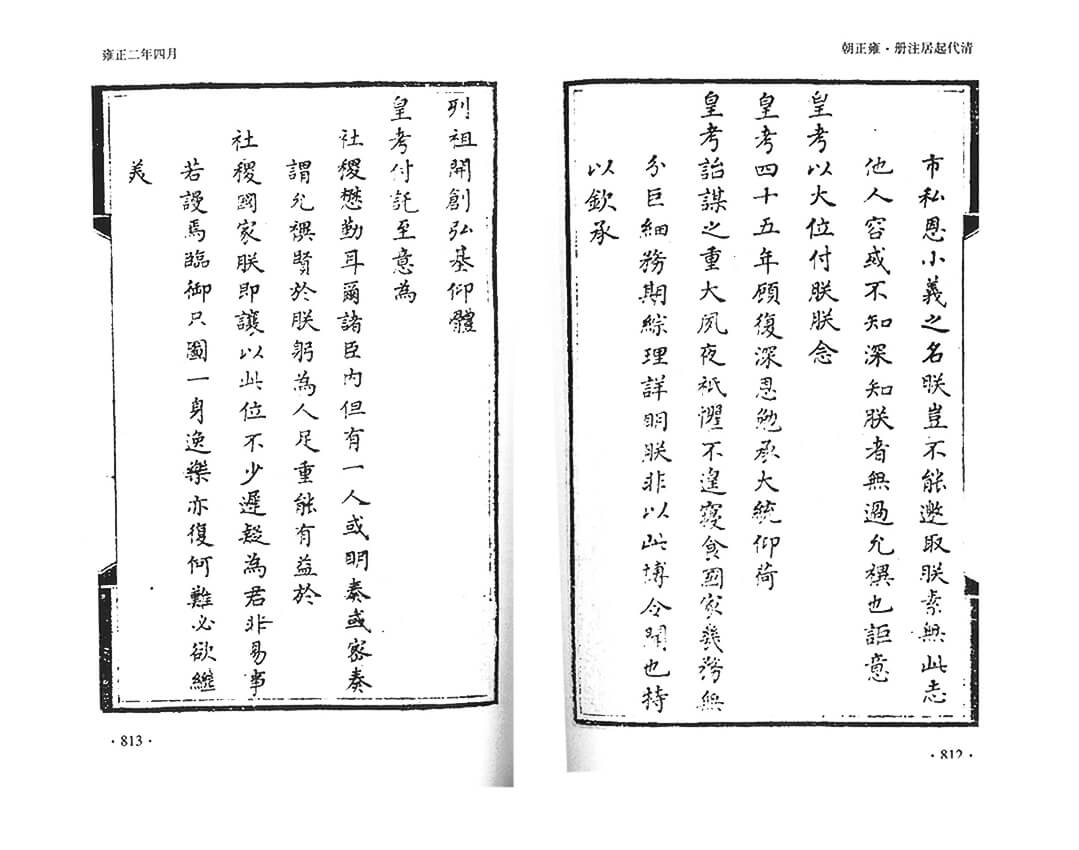 清代起居注册·雍正朝
市私恩小義之名朕豈不能邀取朕素無此志
他人容或不知深知朕者無過允禩也詎意
皇考以大位付朕朕念
皇考四十五年顧復深恩勉承大統仰荷
皇考詒謀之重大夙夜祇懼不遑寢食國家幾務無
分巨細務期綜理詳明朕非以此博令聞也特
以欽承
·812·
雍正二年四月
列祖開創弘基仰體
皇考付託至意為
社稷懋勤耳爾諸臣內但有一人或明奏或密奏
謂允禩賢於朕躬為人足重能有益於
社稷國家朕即讓以此位不少遲疑為君非易事
若謾焉臨御只圖一身逸樂亦復何難必欲繼
美
·813·